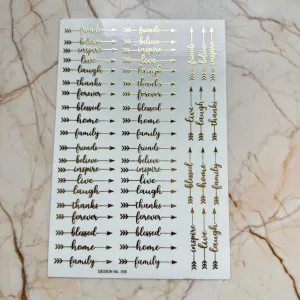 friends
believe
inspire
live
laugh
thanks
forever
blessed
home
family
friends
believe
inspire
live
laugh
thanks
forever
blessed
home
family
friends
believe
inspire
live
laugh
thanks
forever
blessed
home
family
friends
believe
inspire
live
laugh
thanks
forever
blessed
home
family
friends
believe
inspire
live
laugh
thanks
blessed
home
family
inspire
live
laugh
DESIGN No.